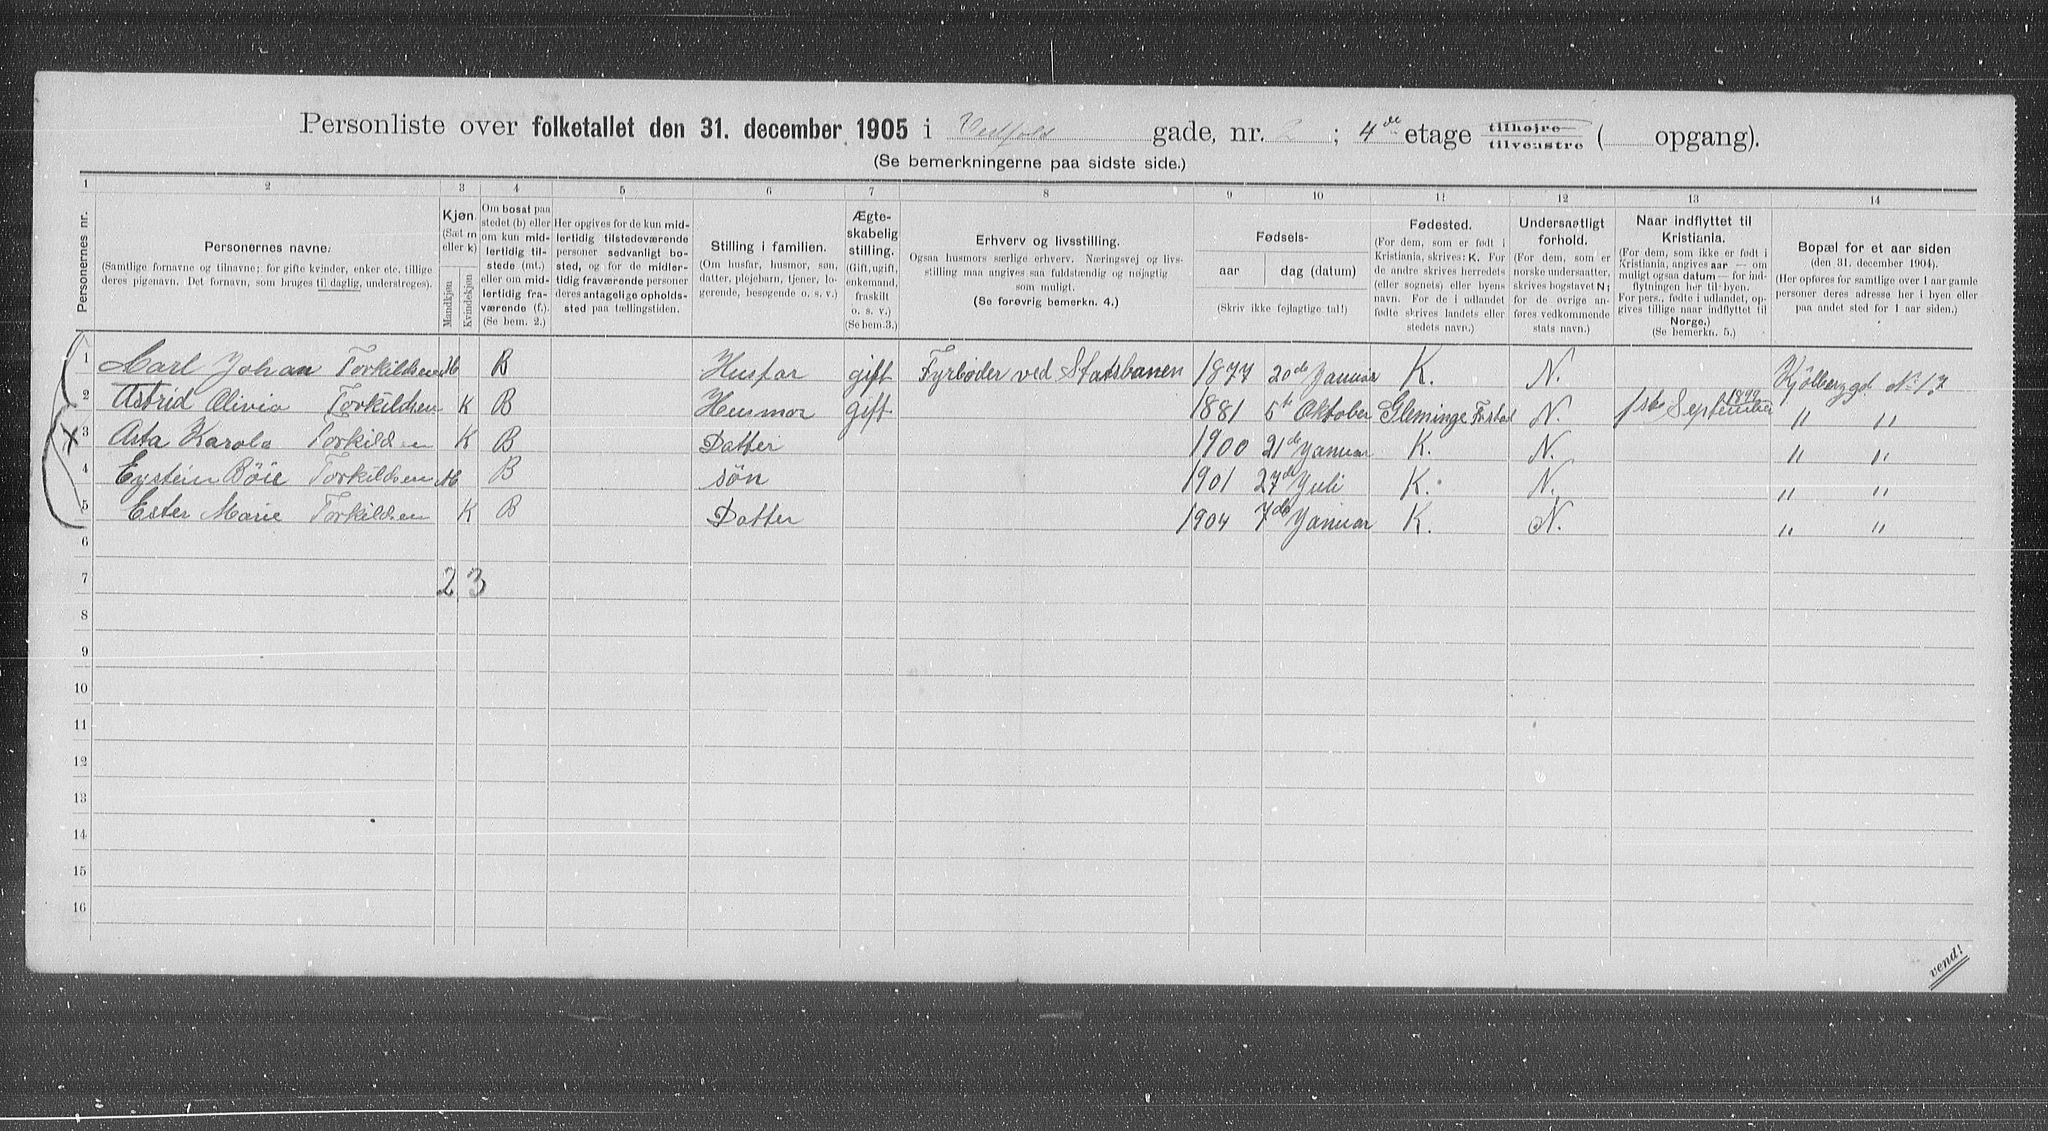 Personliste over folketallet den 31. december 1905 i Vestfold gade, nr. 2 ; 4 de etage tilhøjre tilvenstre ( opgang).
(Se bemerkningerne paa sidste side.)
1 2 3 4 5 6 7 8 9 10 11 12 13 14
Personernes nr.
Personernes navne.
(Samtlige fornavne og tilnavne; for gifte kvinder, enker etc. tillige
deres pigenavn. Det fornavn, som bruges til daglig, understreges).
Kjøn.
(Sæt m
eller k)
Mandkjøn
Kvindekjøn
Om bosat paa
stedet (b) eller
om kun mid-
lertidig til-
stede (mt.)
eller om mid-
lertidig fra-
værende (f.).
(Se bem. 2.)
Her opgives for de kun mid-
lertidig tilstedeværende
personer sedvanligt bo-
sted, og for de midler-
tidig fraværende personer
deres antagelige opholds-
sted paa tællingstiden.
Stilling i familien.
(Om husfar, husmor, søn,
datter, plejebarn, tjener, lo-
gerende, besøgende o. s. v.)
Ægte-
skabelig
stilling.
(Gift, ugift,
enkemand,
fraskilt
o. s. v.)
(Se bem. 3.)
Erhverv og livsstilling.
Ogsaa husmors særlige erhverv. Næringsvej og livs-
stilling maa angives saa fuldstændig og nøjagtig
som muligt.
(Se forøvrig bemerkn. 4.)
Fødsels-
aar dag (datum)
(Skriv ikke fejlagtige tal!)
Fødested.
(For dem, som er født i
Kristiania, skrives: K. For
de andre skrives herredets
(eller sognets) eller byens
navn. For de i udlandet
fødte skrives landets eller
stedets navn.)
Undersaatligt
forhold.
(For dem, som er
norske undersaatter,
skrives bogstavet N;
for de øvrige an-
føres vedkommende
stats navn.)
Naar indflyttet til
Kristiania.
(For dem, som ikke er født i
Kristiania, angives aar — om
muligt ogsaa datum — for ind-
flytningen her til byen.
For pers., fødte i udlandet, op-
gives tillige naar indflyttet til
Norge.)
(Se bemerkn. 5.)
Bopæl for et aar siden
(den 31. december 1904).
(Her opføres for samtlige over 1 aar gamle
personer deres adresse her i byen eller
paa andet sted for 1 aar siden.)
1 Carl Johan Torkildsen M B Husfar gift Fyrbøder ved Statsbanen 1877 20de Januar K. N. Kjølberggd No 17
2 Astrid Olivia Torkildsen K B Husmor gift 1881 5t Oktober Gleminge N. 1ste September 1899 " "
3 Asta Karola Torkildsen K B Datter 1900 21de Januar K. N. " "
4 Eystein Böie Torkildsen M B søn 1901 27de Juli K. N. " "
5 Ester Marie Torkildsen K B Datter 1904 7de Januar K. N. " "
6
7 2 3
8
9
10
11
12
13
14
15
16
vend!